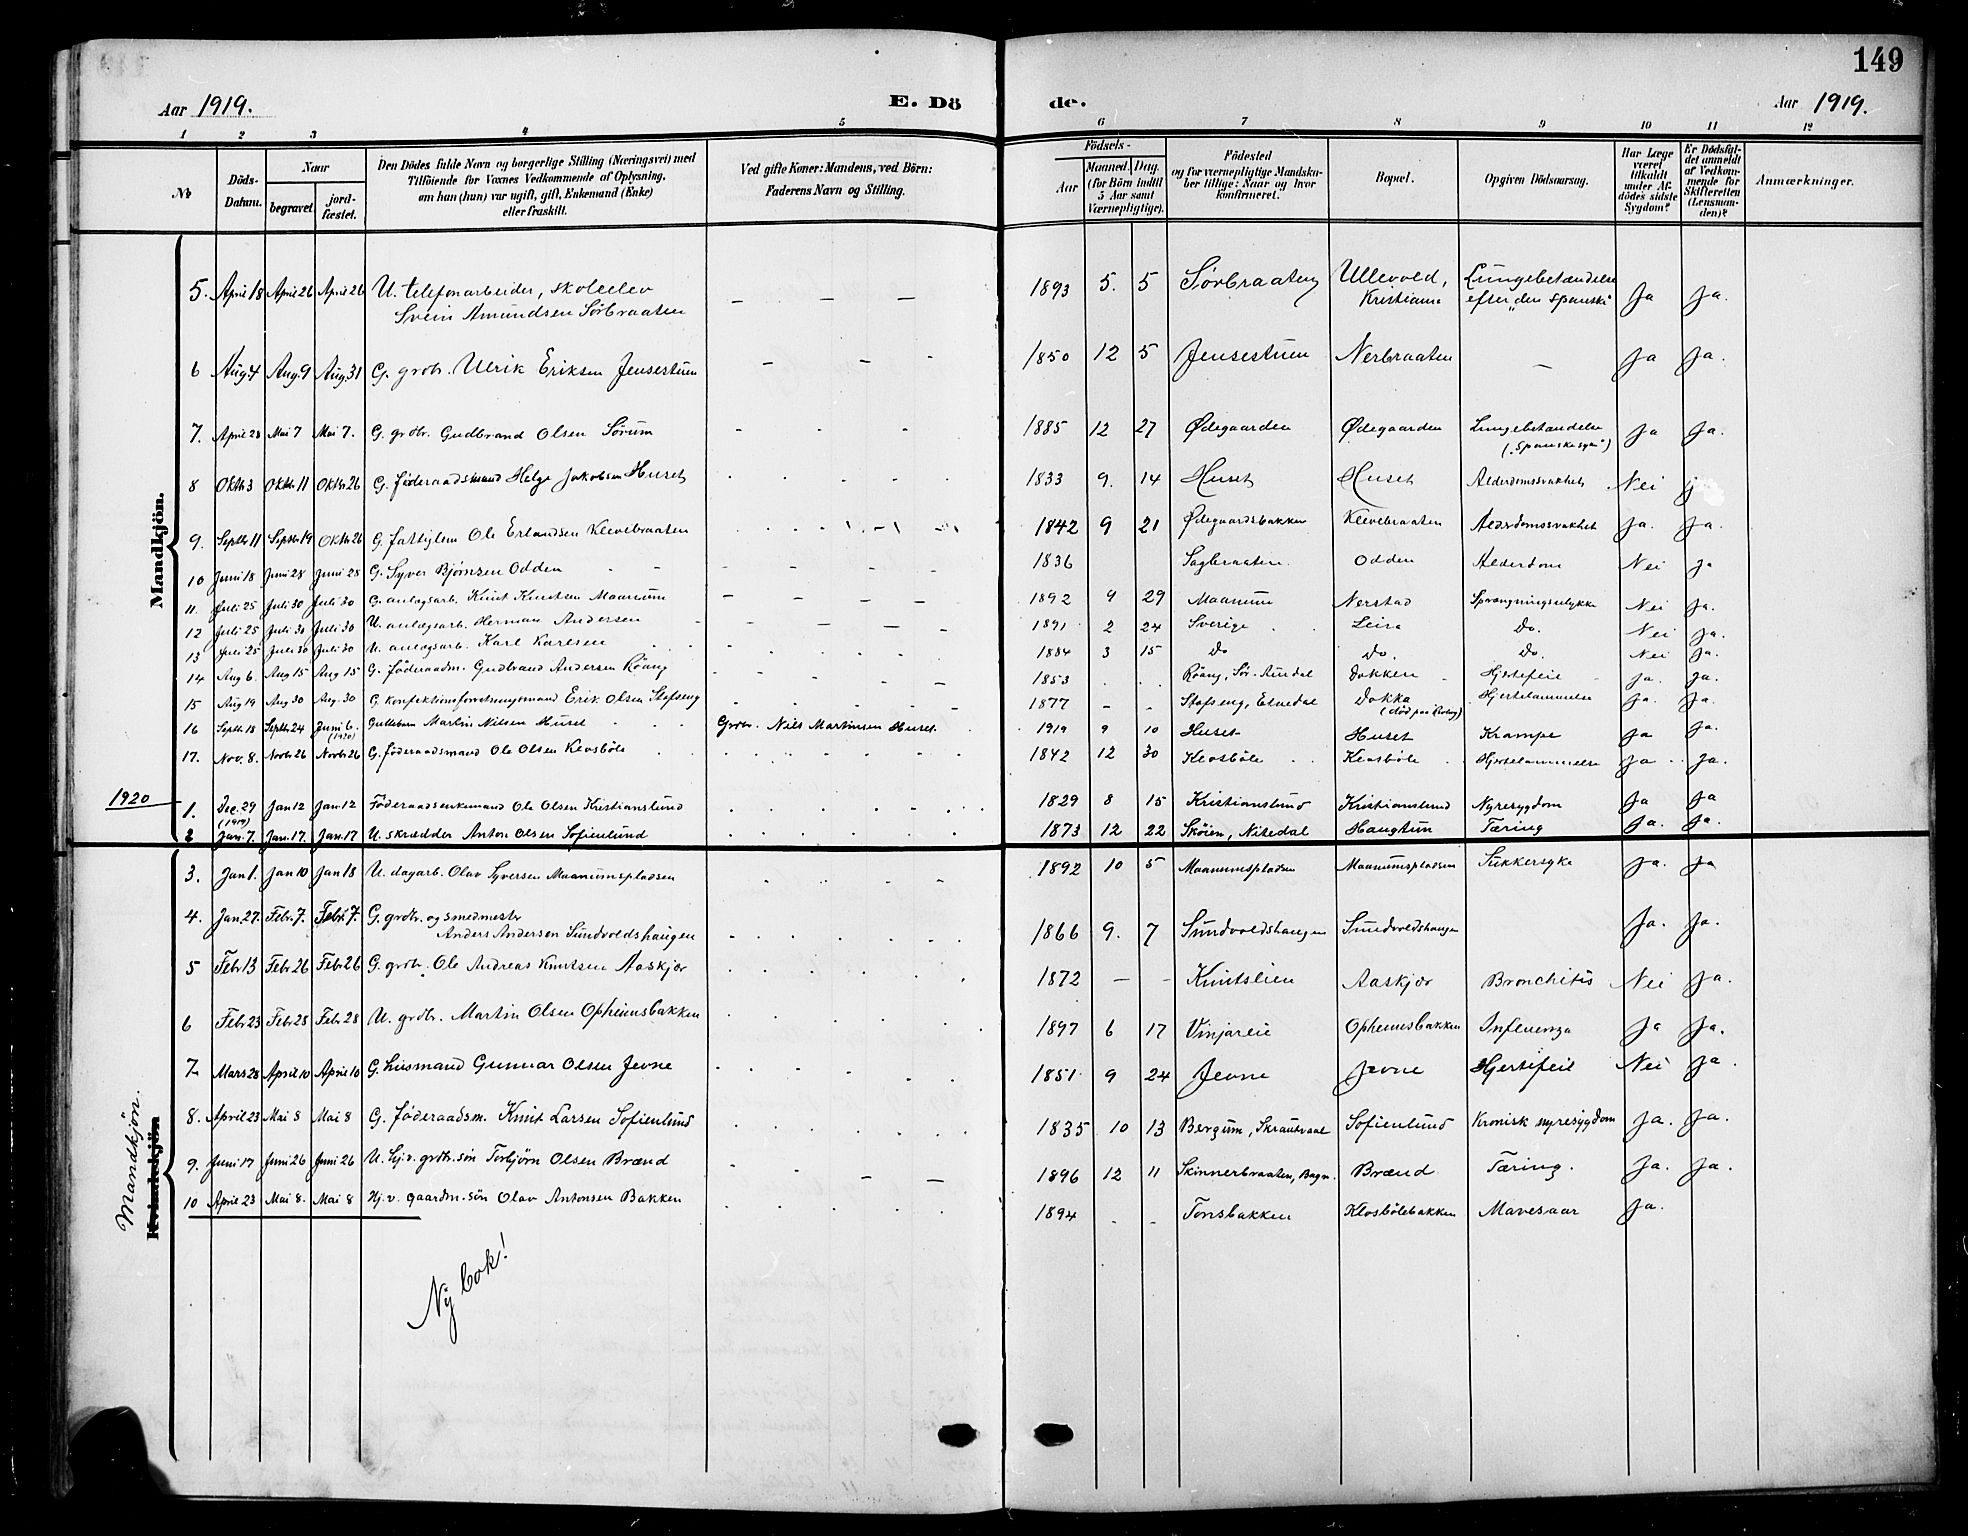 149
Aar 1919. E. Dö de. Aar 1919.
1 2 3 4 5 6 7 8 9 10 11 12
No
Döds-Datum.
Naar
begravet
jord-fæstet.
Den Dödes fulde Navn og borgerlige Stilling (Næringsvei) med
Tilföiende for Voxnes Vedkommende af Oplysning,
om han (hun) var ugift, gift, Enkemand (Enke)
eller fraskilt.
Ved gifte Koner: Mandens, ved Börn:
Faderens Navn og Stilling.
Födsels-
Aar
Maaned. Dag.
(for Börn indtil
5 Aar samt
Værnepligtige).
Födested
og for værnepligtige Mandska-
ber tillige: Naar og hvor
konfirmeret.
Bopæl.
Opgiven Dödsaarsag.
Har Læge
været
tilkaldt
under Af-
dödes sidste
Sygdom?
Er Dödsfal-
det anmeldt
af Vedkom-
mende for
Skifteretten
(Lensman-
den)?
Anmærkninger.
Mandkjön.
5. April 18 April 26 April 26 U. telefonarbeider, skoleelev — — — 1893 5. 5 Sørbraaten Ullevold, Lungebetændelse
Svein Amundsen Sørbraaten Kristiania efter „den spanske" Ja Ja.
6 Aug. 4 Aug. 9 Aug. 31 G. grdbr. Ulrik Eriksen Jensestuen — — - 1850 12 5 Jensestuen Nerbraaten — Ja Ja.
7. April 28 Mai 7 Mai 7. G. grdbr. Gudbrand Olsen Sørum - - - 1885 12 27 Ødegaarden Ødegaarden Lungebetændelse Ja Ja.
(„Spanskesyke")
8 Oktbr 3 Oktbr 11 Oktbr 26 G. føderaadsmand Helge Jakobsen Huset 1833 9. 14 Huset Huset Alderdomssvakhet Nei j
9. Septbr 11 Septbr 19 Oktbr 26 G. fattiglem Ole Erlandsen Klevebraaten 1842 9 21 Ødegaardsbakken Klevebraaten Alderdomssvakhet Ja. Ja.
10 Juni 18 Juni 28 Juni 28 G. Syver Bjønsen Odden 1836 Sagbraaten Odden Alderdom Nei Ja
11. Juli 25 Juli 30 Juli 30 G. anlægsarb. Knut Knutsen Maanum — — — — 1892 9 29 Maanum Nerstad Sprængningsulykke Nei Ja.
12 Juli 25 Juli 30 Juli 30 U. anlægsarb. Herman Andersen 1891 2 24 Sverige Leira Do. Nei Ja.
13 Juli 25 Juli 30 Juli 30 U. anlægsarb. Karl Karlsen 1884 3 15 Do Do. Do. Nei Ja.
14 Aug 6. Aug 15 Aug 15 G. føderaadm. Gudbrand Andersen Røang 1853 . . Røang, Sør-Aurdal Dokken Hjertefeil Ja. Ja.
15 Aug 19 Aug 30 Aug. 30 G. konfektionsforretningsmand Erik Olsen Stafseng 1877 — - Stafseng, Etnedal Dokka Hjertelammelse Ja. Ja.
16 Septbr 18 Septbr 24 Juni 6. Guttebarn Martin Nilsen Huset Grdbr. Nils Martinsen Huset 1919 9 10 Huset Huset Krampe Ja Ja.
(1920)
17. Nov. 8. Novbr 26 Novbr 26 G. føderaadsmand Ole Olsen Klosbøle 1842 12 30 Klosbøle Klosbøle Hjertelammelse Ja Ja.
1920
1. Dec. 29 Jan 12 Jan. 12 Føderaadsenkemand Ole Olsen Kristianslund 1829 8 15 Kristianslund Kristianslund Nyresygdom Ja Ja
(1919)
2 Jan. 7. Jan. 17 Jan. 17 U. skrædder Anton Olsen Sofienlund 1873 12 22 Skøien, Nitedal Haugtun Tæring Ja. Ja.
Mandkjön.
Kvindekjön
3. Jan 1. Jan 10 Jan 18 U. dagarb. Olav Syversen Maanumspladsen 1892 10 5 Maanumspladsen Maanumspladsen Sukkersyke Ja. Ja
4. Jan. 27. Febr. 7. Febr. 7. G. grdbr. og smedmester
Anders Andersen Sundvoldshaugen 1866 9. 7 Sundvoldshaugen Sundvoldshaugen Ja. Ja.
5 Febr 13 Febr 26 Febr 26 G. grdbr. Ole Andreas Knutsen Aaskjær 1872 — - Knutslien Aaskjær Bronchitis Nei Ja.
6 Febr 23 Febr 28 Febr 28 U. grdbr. Martin Olsen Opheimsbakken 1897 6 17 Vinjareie Opheimsbakken Influenza Ja Ja.
7 Mars 28 April 10 April 10 G. husmand Gunnar Olsen Jevne 1851. 9 24 Jevne Jevne Hjertefeil Nei Ja.
8. April 23 Mai 8 Mai 8 G. føderaadsm. Knut Larsen Sofienlund 1835 10 13 Bergum, Skrautvaal Sofienlund Kronisk nyresygdom Ja. Ja.
9. Juni 17 Juni 26 Juni 26 U. hj.v. grdbr.søn Torbjørn Olsen Brænd 1896 12 11 Skinnerbraaten, Bagn. Brænd Tæring. Ja. Ja.
10 April 23 Mai 8. Mai 8 Hj.v. gaardm.søn Olav Antonsen Bakken 1894 . - Tonsbakken Klosbølebakken Mavesaar Ja.
Ny bok!